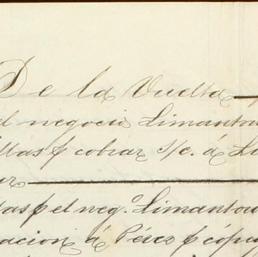 De la Vuelta
el negocio Limantou
llas p cobrar s/c. á Li
ar
las p el neg.º Limantou
acion á Pérez p cópia